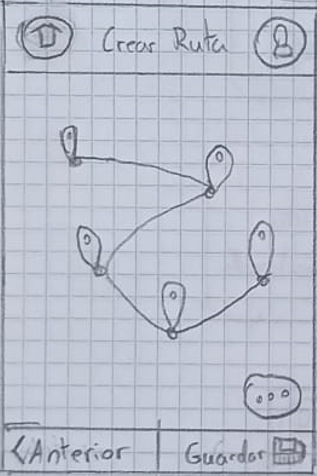 Crear Ruta
<Anterior
Guardar